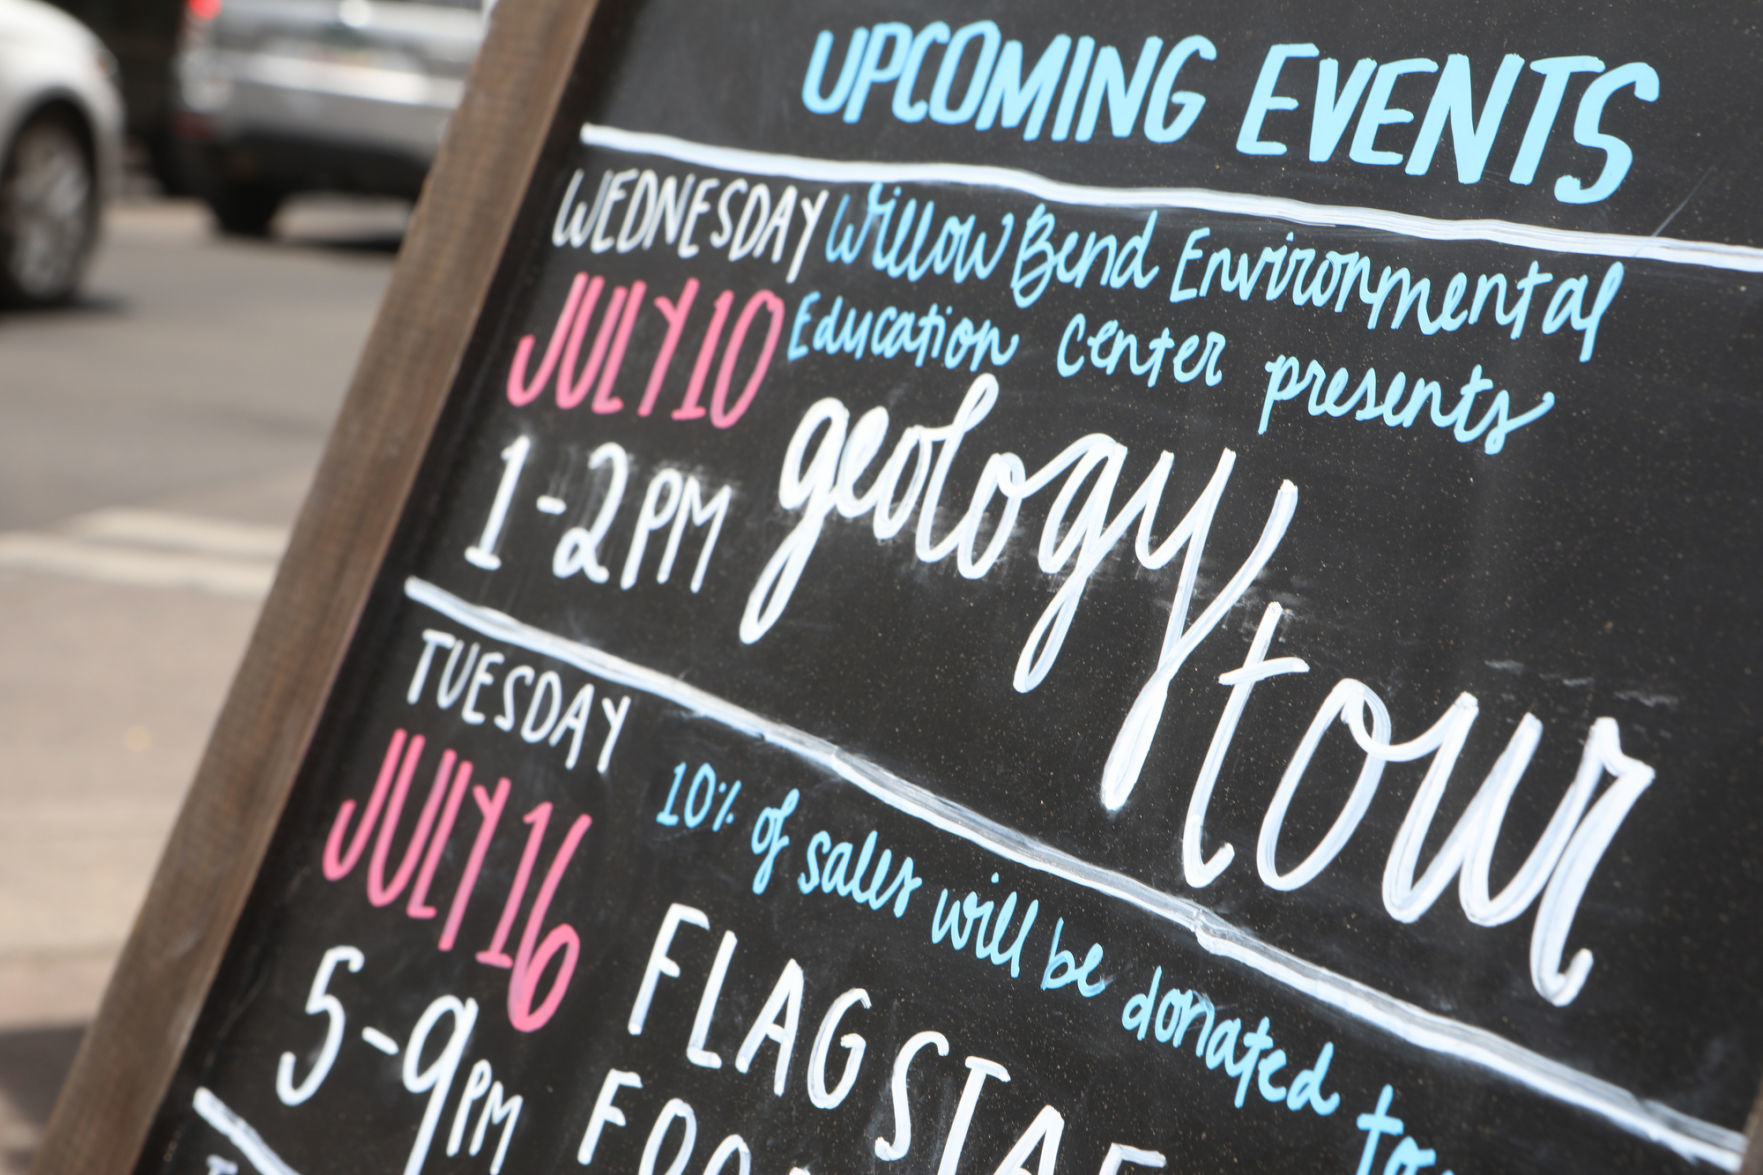 UPCOMING EVENTS
WEDNESDAY
JULY 10
1-2PM
Willow Bend Environmental
Education Center presents
geology
tour
TUESDAY
JULY 16
5-9PM
10% of sales will be donated to
FLAGSTAF
FOO